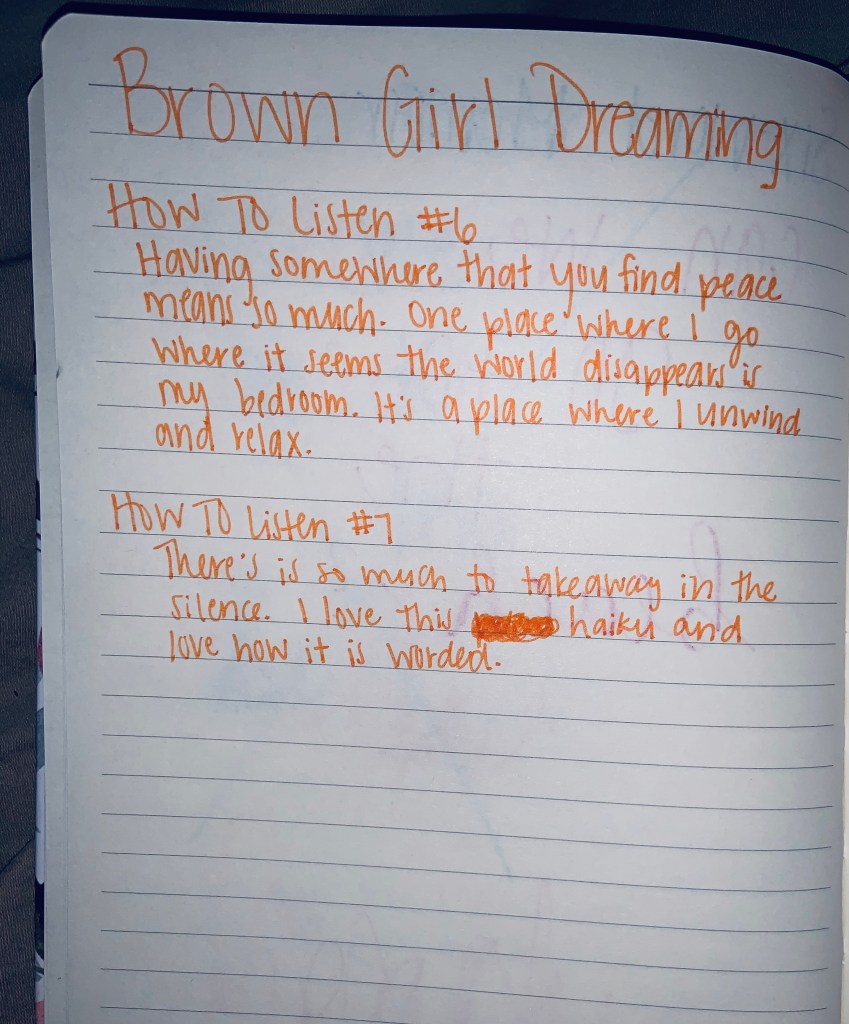 Brown Girl Dreaming
How To Listen #6
Having somewhere that you find peace
means so much. One place where I go
where it seems the world disappears is
my bedroom. It's a place where I unwind
and relax.
How To Listen #7
There's is so much to takeaway in the
silence. I love this haiku and
love how it is worded.